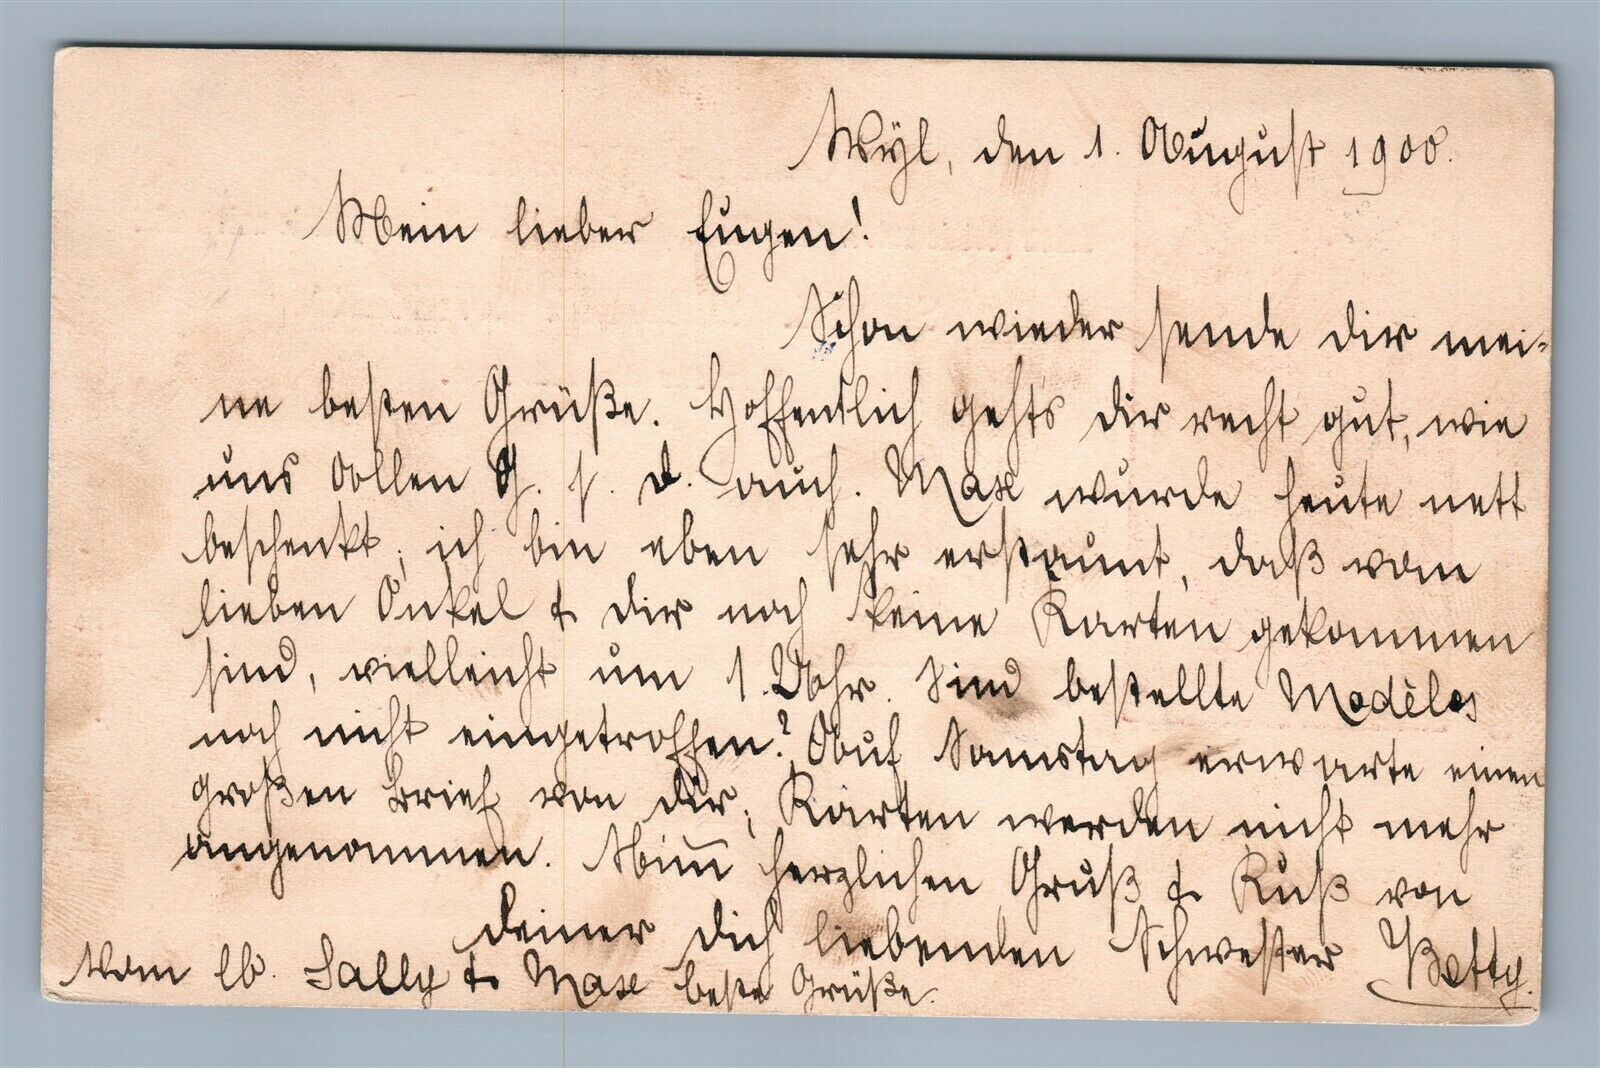 Wÿl, den 1. August 1900.
Mein lieber Eugen!
Schon wieder sende dir mei-
ne besten Grüße. Hoffentlich gehts dir recht gut, wie
uns Allen G. s. d. auch. Max wurde heute nett
beschenkt, ich bin eben sehr erstaunt, daß vom
lieben Onkel & dir noch keine Karten gekommen
sind, vielleicht um 1 Uhr. Sind bestellte Modèles
noch nicht eingetroffen? Auf Samstag erwarte einen
großen Brief von dir, Karten werden nicht mehr
angenommen. Nim̄ herzlichen Gruß & Kuß von
deiner dich liebenden Schwester Betty.
Vom lb. Sally & Max beste Grüße.